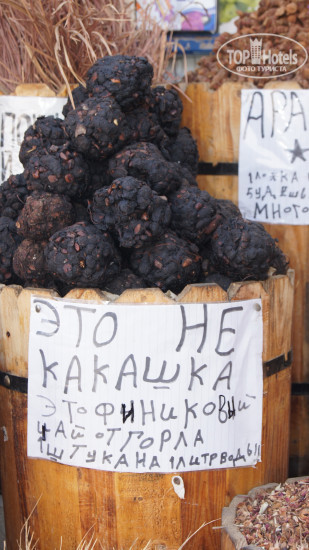 TopHotels
ФОТО ТУРИСТА
АРА
1 ЛОЖКА
БУДЕШЬ
МНОГО
ЭТО НЕ
КАКАШКА
ЭТО ФИНИКОВЫЙ
ЧАЙ ОТ ГОРЛА
1 ШТУКА НА 1 ЛИТР ВОДЫ